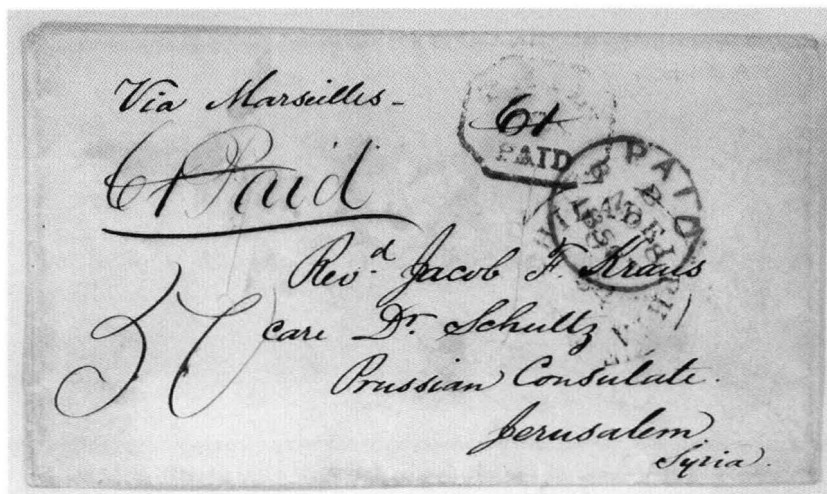 Via Marseilles -
61
PAID
61 Paid
PAID
Rev.d Jacob F. Kraus
care Dr. Schultz
Prussian Consulate.
Jerusalem
Syria.